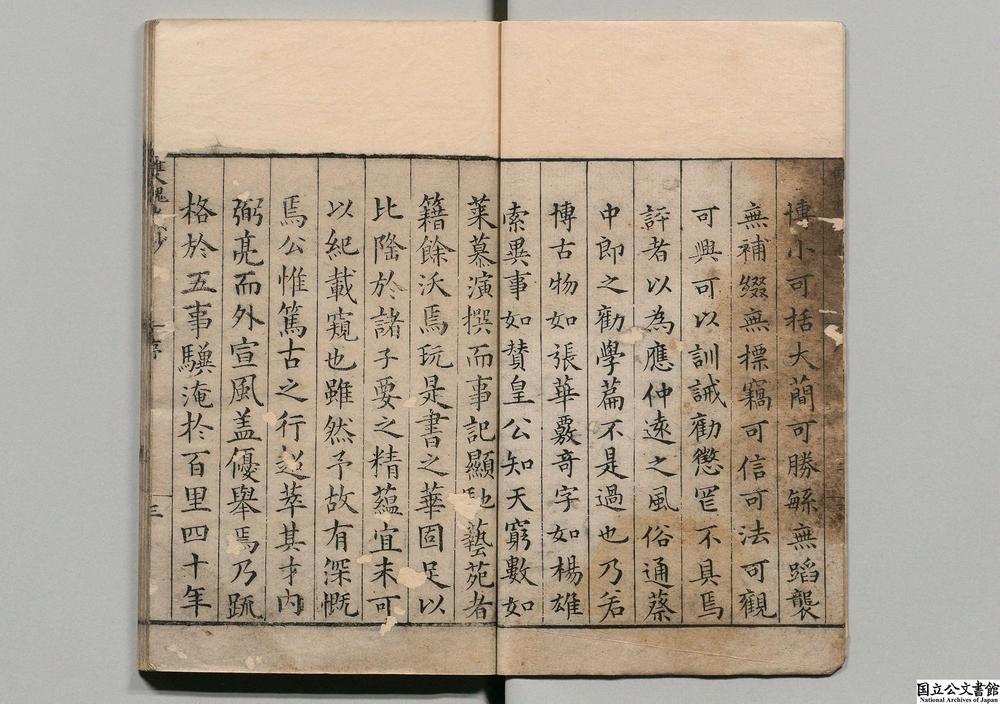 博小可括大簡可勝緐無蹈襲
無補綴無標竊可信可法可觀
可興可以訓誡勸懲罔不具焉
評者以為應仲遠之風俗通蔡
中郎之勸學篇不是過也乃若
博古物如張華覈奇字如楊雄
索異事如賛皇公知天窮數如
萊慕演撰而事記顯馳藝苑者
籍餘沃焉玩是書之華固足以
比隆於諸子要之精蘊宜未可
以紀載窺也雖然予故有深慨
焉公惟篤古之行超萃其才内
弼亮而外宣風盖優舉焉乃䟽
格於五事驥淹於百里四十年
序
三
国立公文書館
National Archives of Japan